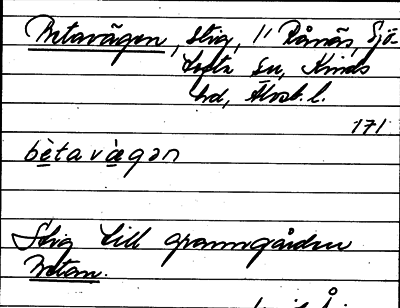 Betavägen, stig, i Rånäs, Sjö-
tofta sn, Kinds
hd, Älvsb. l.
171
bètavàgən
Stig till granngården
Betan.